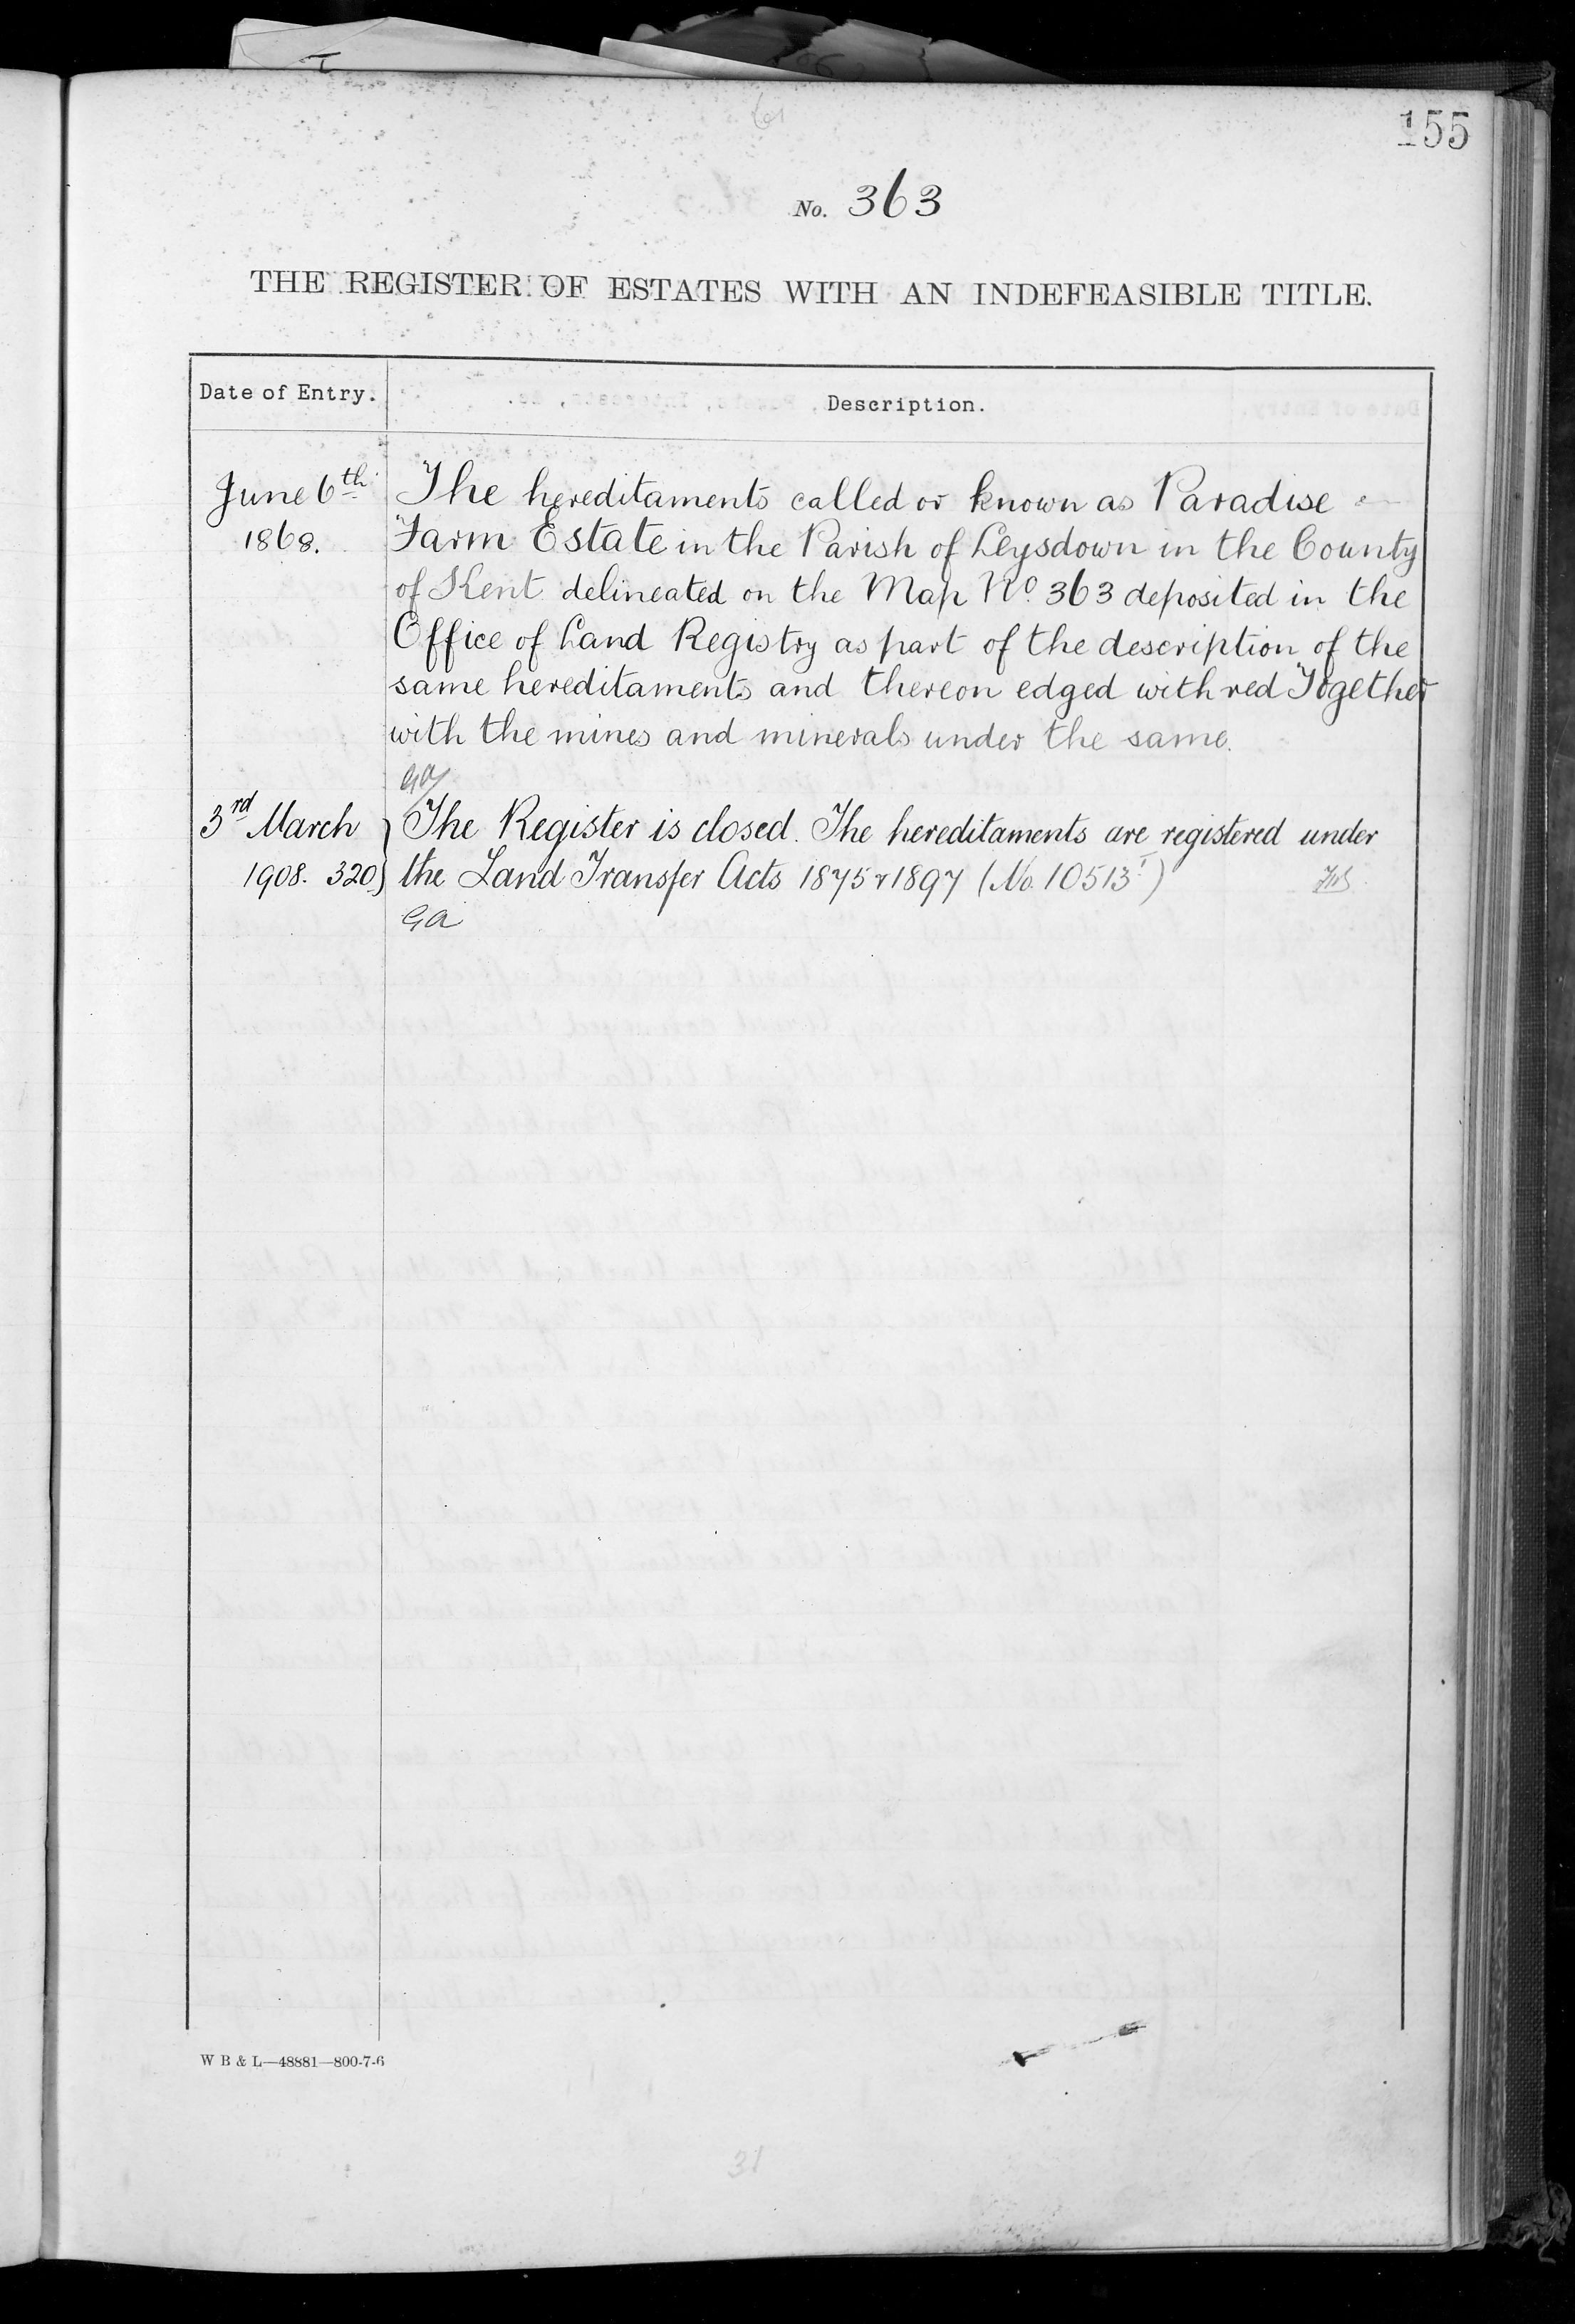 155
No. 363
THE REGISTER OF ESTATES WITH AN INDEFEASIBLE TITLE.
Date of Entry.
Description.
June 6th
1868.
The hereditaments called or known as Paradise
Farm Estate in the Parish of Leysdown in the County
of Kent delineated on the Map No. 363 deposited in the
Office of Land Registry as part of the description of the
same hereditaments and thereon edged with red Together
with the mines and minerals under the same.
3rd March
1908. 320
The Register is closed. The hereditaments are registered under
the Land Transfer Acts 1875 & 1897 (No. 10513)
GA
W B & L—48881—800-7-6
31